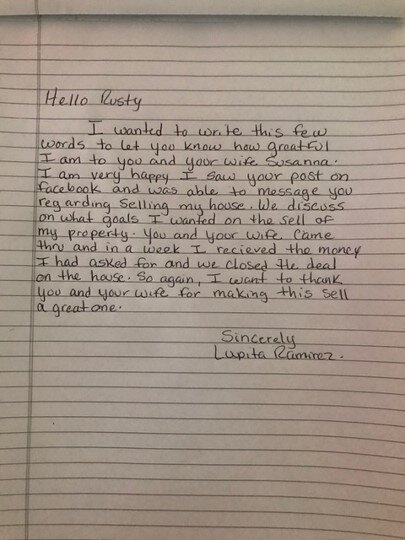 Hello Rusty
I wanted to write this few
words to let you know how greatful
I am to you and your wife Susanna.
I am very happy I saw your post on
facebook and was able to message you
regarding selling my house. We discuss
on what goals I wanted on the sell of
my property. You and your wife came
thru and in a week I recieved the money
I had asked for and we closed the deal
on the house. So again, I want to thank
you and your wife for making this sell
a great one.
Sincerely
Lupita Ramirez.